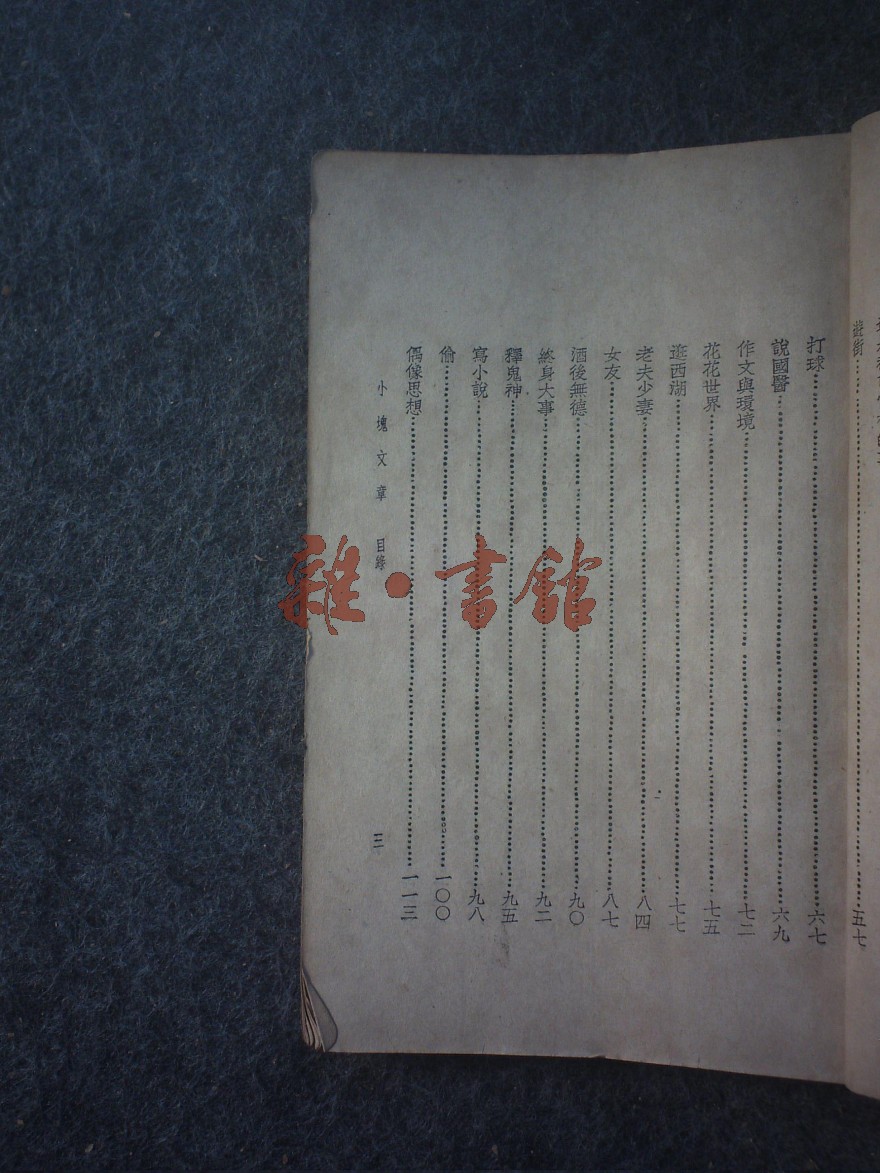 遊街……五七
打球……六七
說國醫……六九
作文與環境……七二
花花世界……七五
逛西湖……七七
老夫少妻……八四
女友……八七
酒後無德……九〇
終身大事……九二
釋鬼神……九五
寫小說……九八
偷……一〇〇
偶像思想……一一三
小塊文章 目錄 三
雜·書館